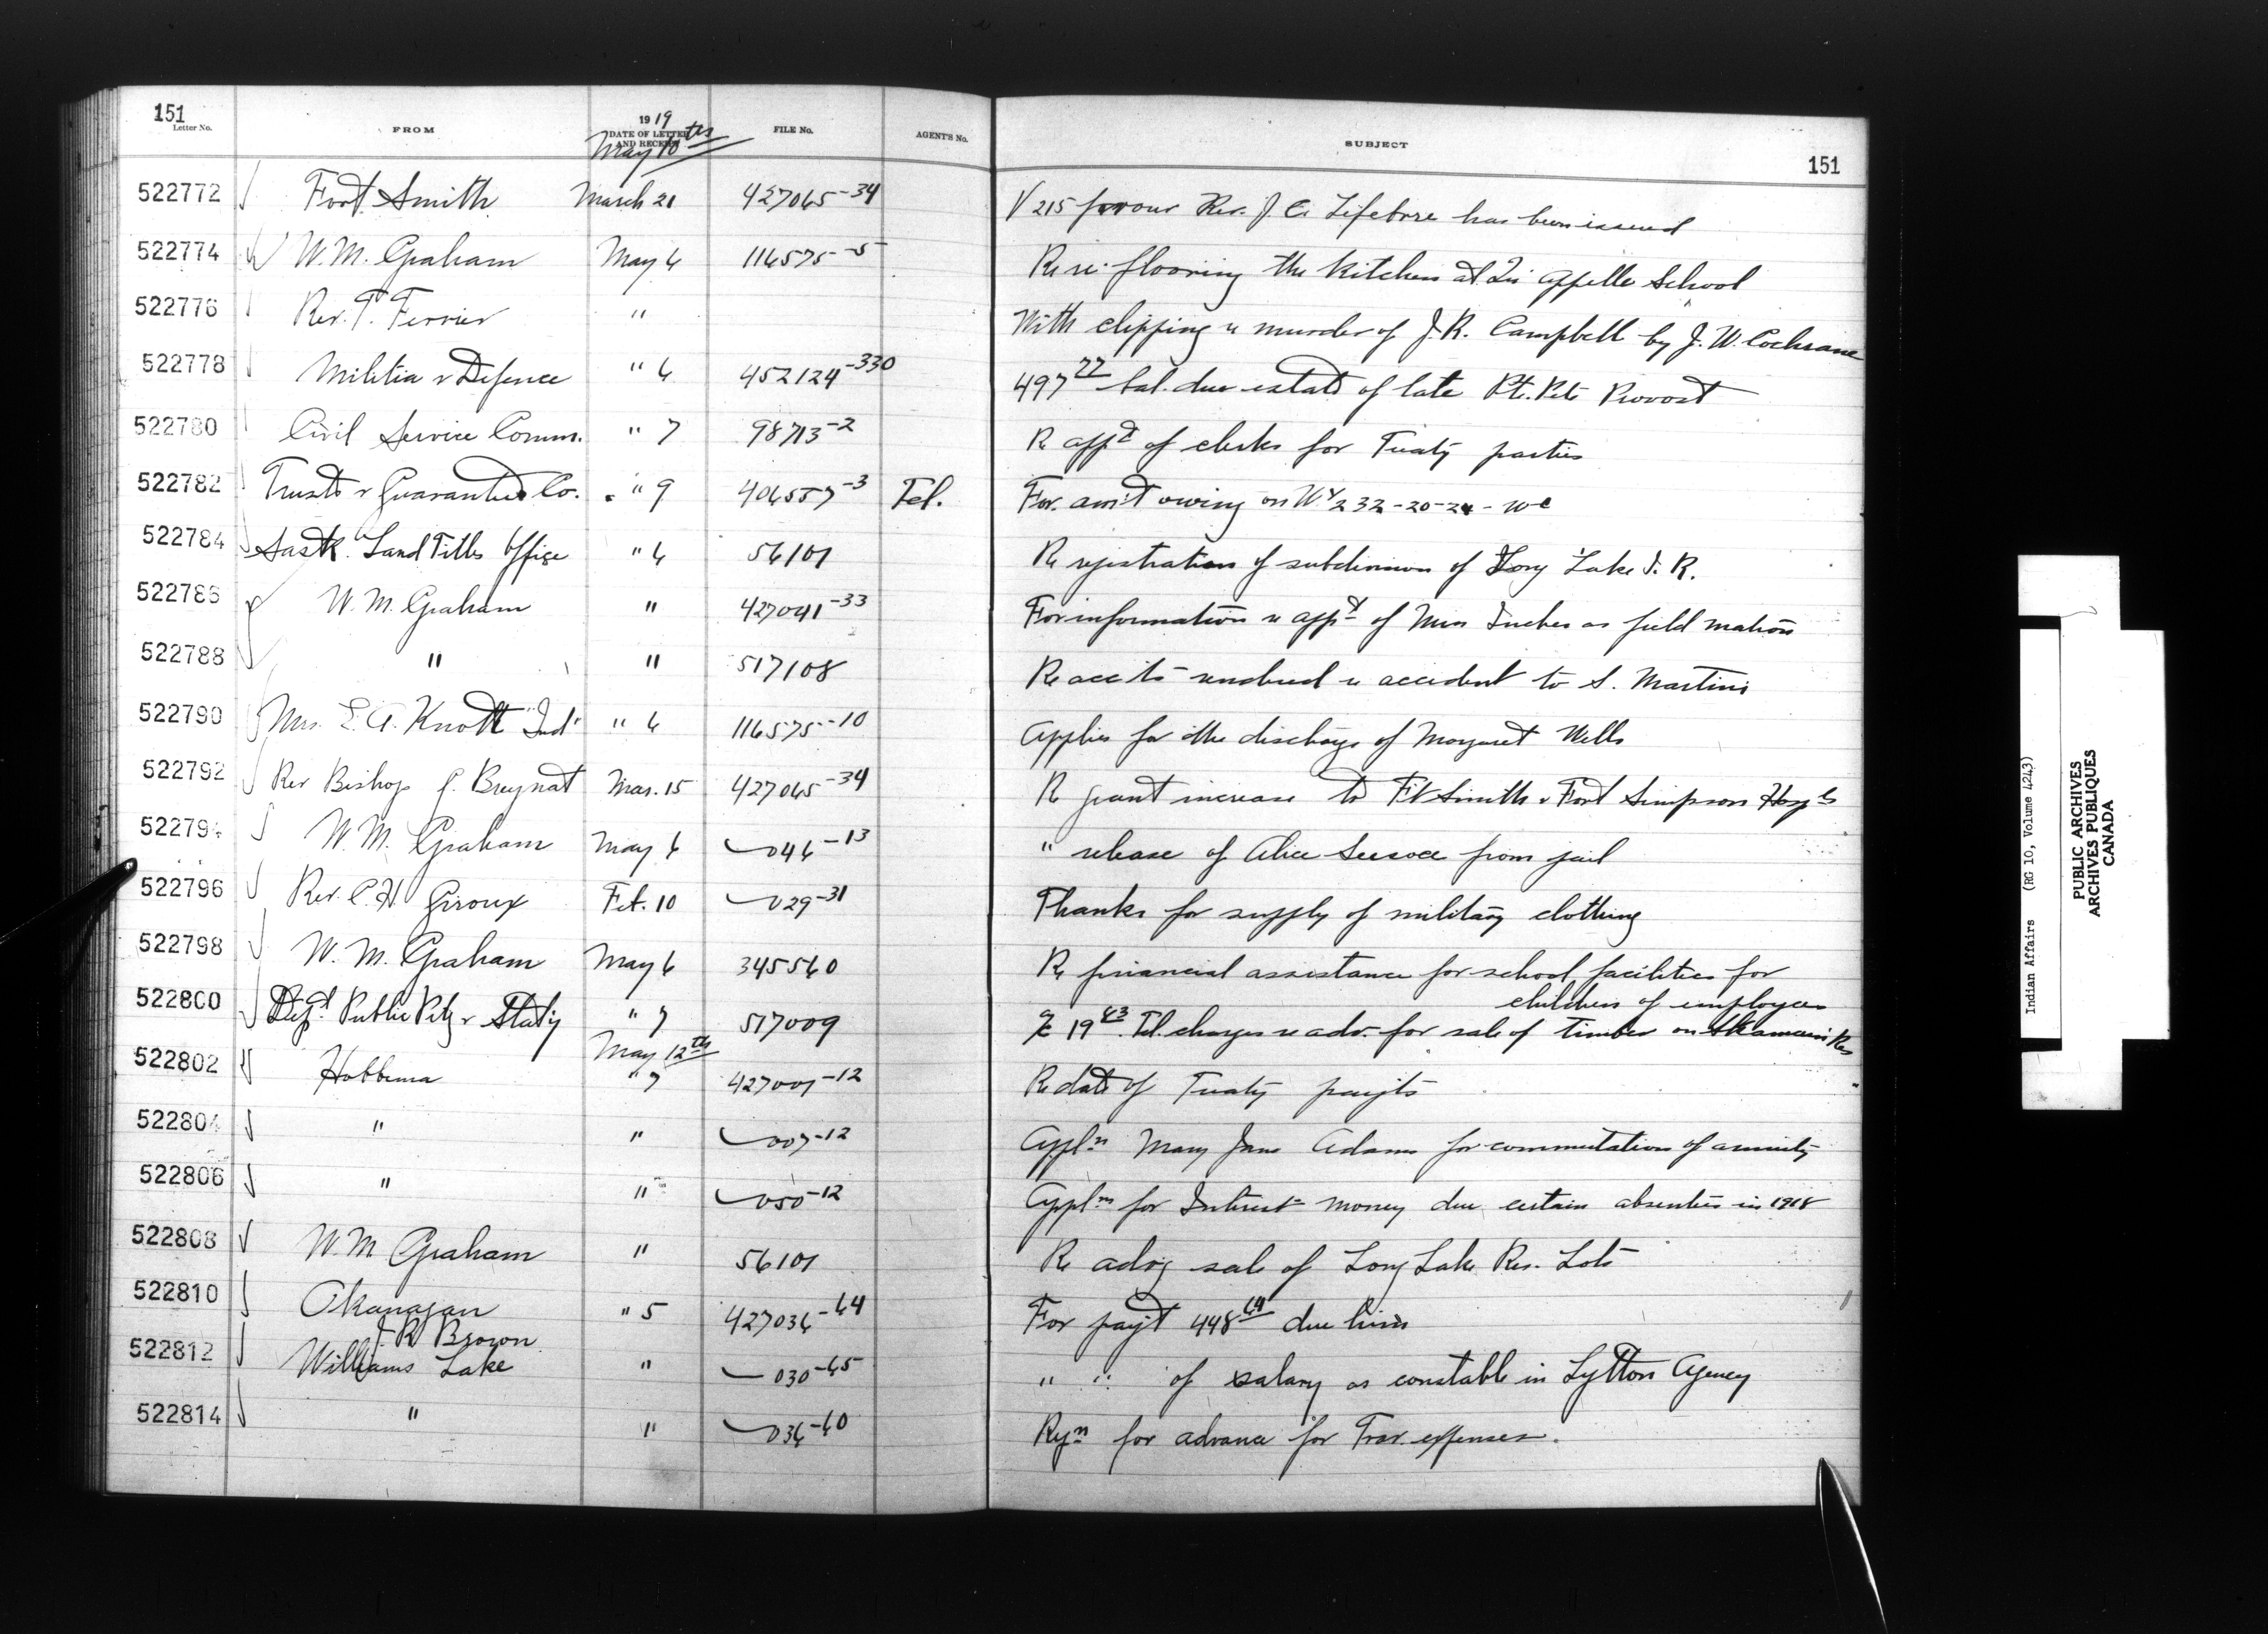 151
Letter No.
FROM
1919
DATE OF LETTER
AND RECEIPT
May 10th
FILE No.
AGENT'S No.
SUBJECT
151
522772 Fort Smith March 21 427065-34 V 215 favour Rev. J. A. Lefebvre has been issued
522774 W. M. Graham May 6 116575-5 Re re-flooring the kitchen at Qu'appelle School
522776 Rev. T. Ferrier " With clipping re murder of J. R. Campbell by J. W. Cochrane
522778 Militia & Defence " 6 452124-330 497 77 bal. due estate of late Pte. Pete Provost
522780 Civil Service Comm. " 7 98713-2 Re appt of clerks for Treaty parties
522782 Trusts & Guarantee Co. " 9 406557-3 Tel. For am't owing on W 1/2 32-20-24-W
522784 Sask. Land Titles Office " 6 56101 Re registration of subdivision of Long Lake I. R.
522786 W. M. Graham " 427041-33 For information re appt of Miss Inches as field matron
522788 " " 517108 Re acc'ts rendered re accident to S. Martin
522790 Mrs. E. A. Knott "Ind" " 6 116575-10 Applies for the discharge of Margaret Wells
522792 Rev Bishop G. Breynat Mar. 15 427065-34 Re grant increase to Ft Smith & Fort Simpson Hospls
522794 W. M. Graham May 6 046-13 " release of Alice from jail
522796 Rev. C. H. Giroux Feb. 10 029-31 Thanks for supply of military clothing
522798 W. M. Graham May 6 345560 Re financial assistance for school facilities for
children of employees
522800 Dept. Public Ptg & Stat'y " 7 517009 19 43 Tel. charges re adv. for sale of timber on Res
May 12th
522802 Hobbema " 7 427001-12 Re date of Treaty paym'ts
522804 " " 007-12 Appln Mary Jane Adams for commutation of annuity
522806 " " 050-12 Appln for Interest money due certain absentees in 1918
522808 W. M. Graham " 56101 Re advg sale of Long Lake Res. Lots
522810 Okanagan " 5 427036-64 For paym't 448 64 due him
J. R. Brown
522812 Williams Lake " 030-65 " " of salary as constable in Lytton Agency
522814 " " 036-60 Reqn for advance for Trav. expenses.
Indian Affairs (RG 10, Volume 4243)
PUBLIC ARCHIVES
ARCHIVES PUBLIQUES
CANADA